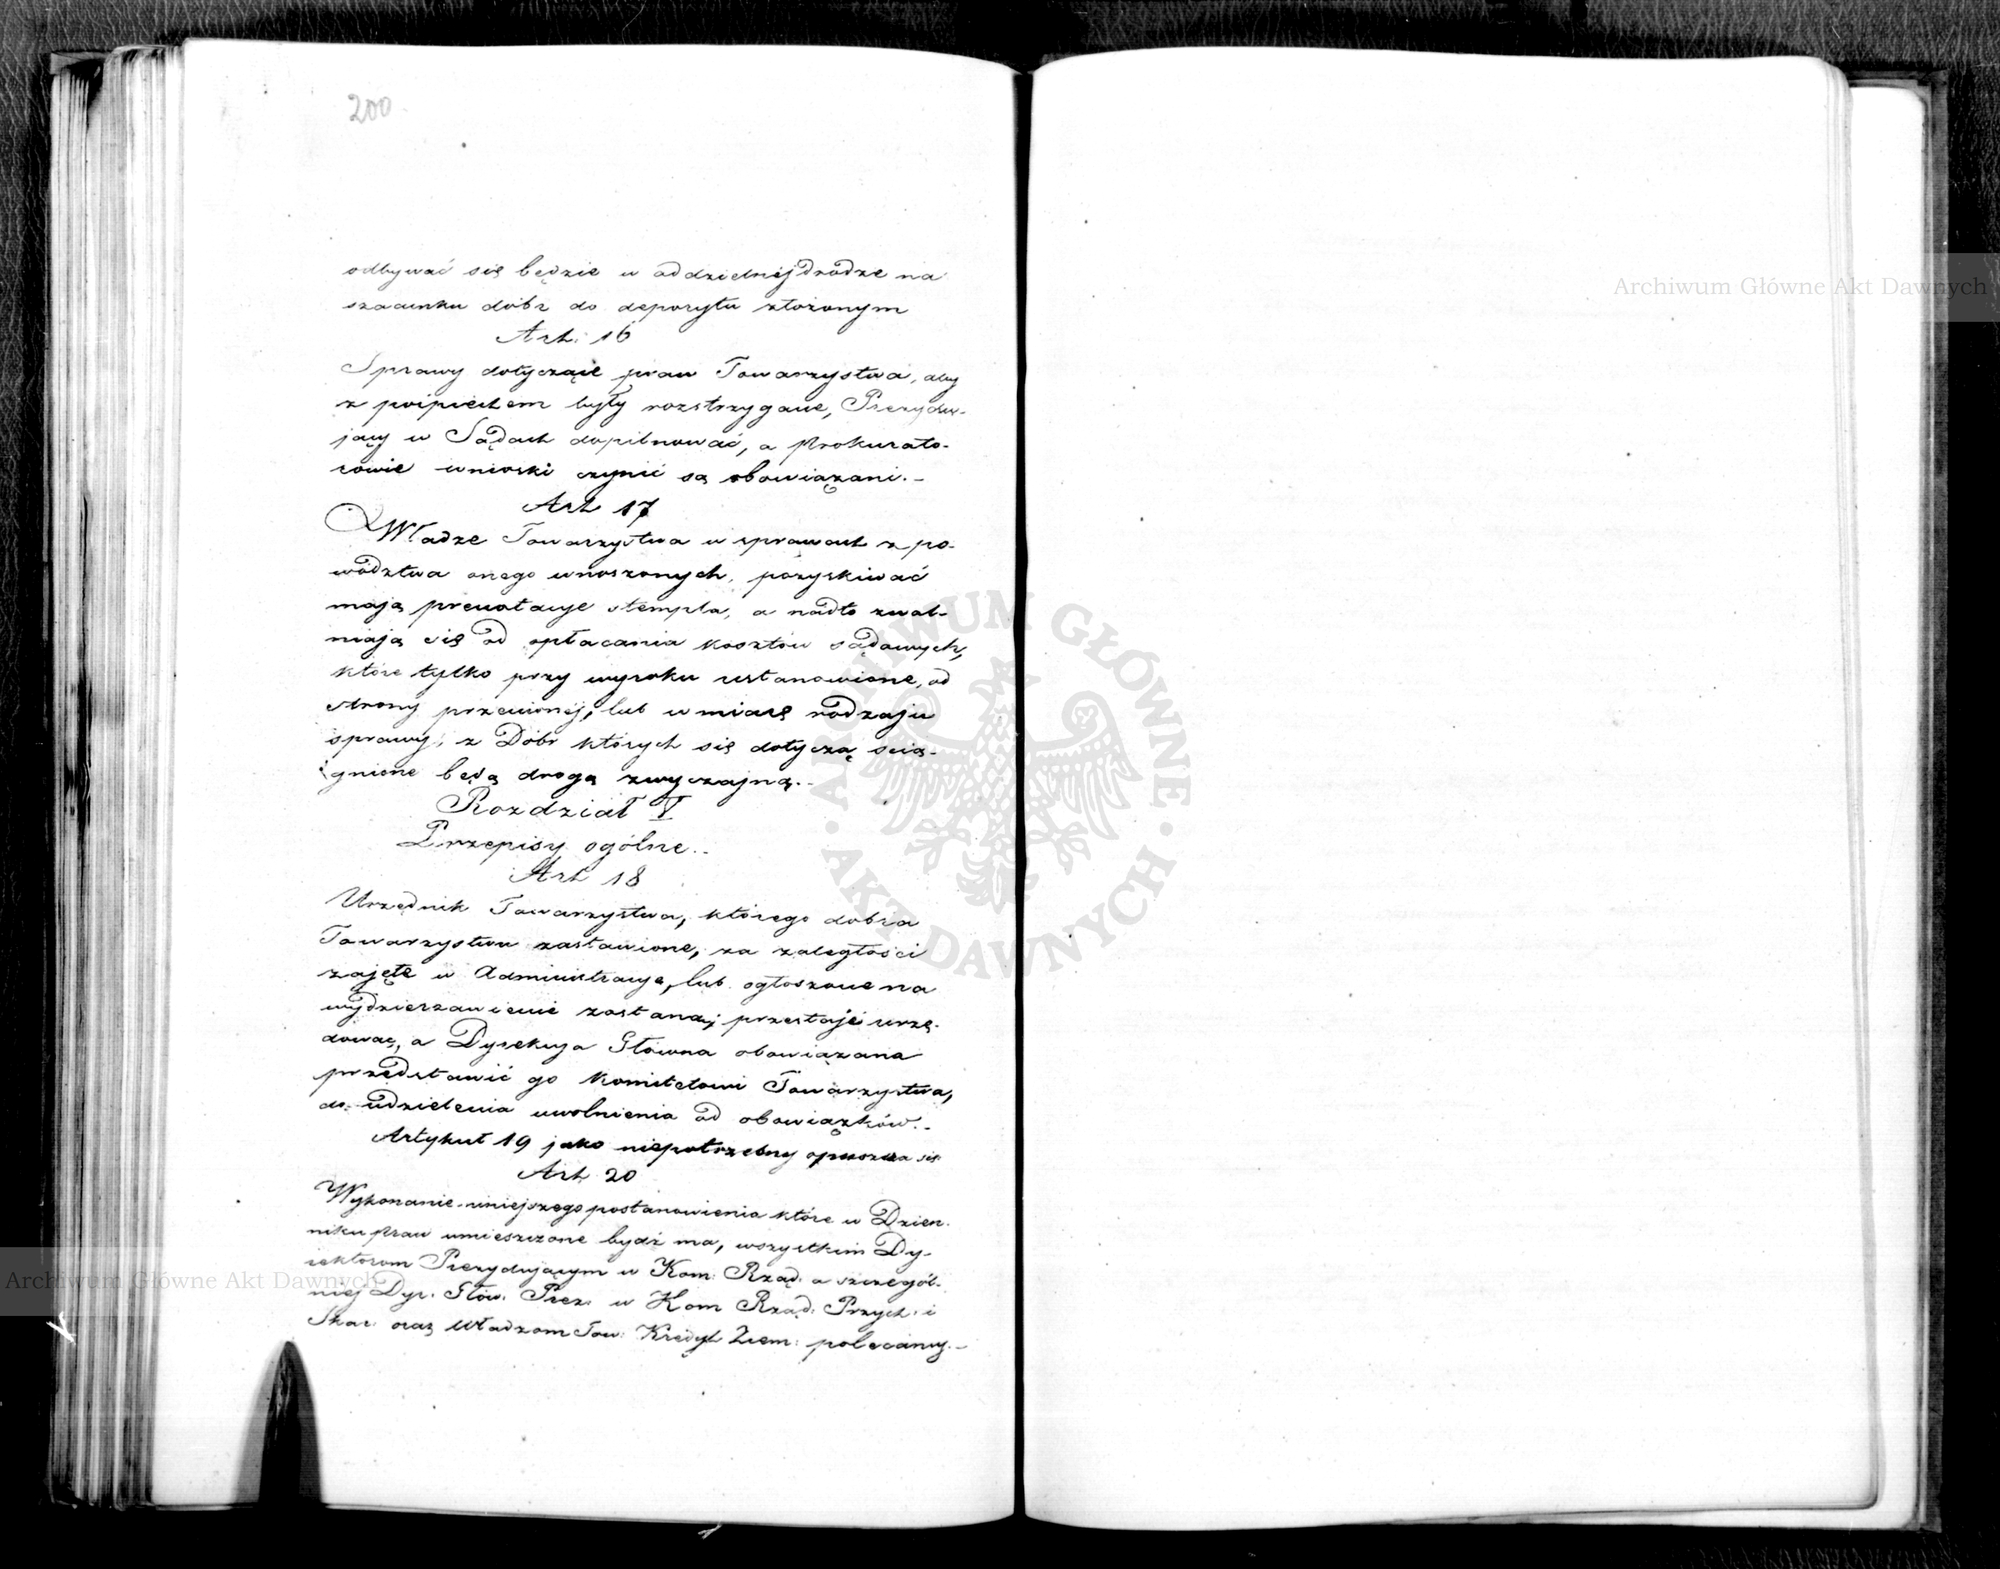 200
odbywać się będzie w oddzielnej drodze na
szacunku dóbr do depozytu złożonym
Art: 16
Sprawy dotyczące praw Towarzystwa, aby
z pośpiechem były rozstrzygane, Prezydu-
jący w Sądach dopilnować, a Prokurato-
rowie wnioski czynić są obowiązani.-
Art 17
Władze Towarzystwa w sprawach z po-
wództwa onego wnoszonych, pozyskiwać
mają prenotacye stempla, a nadto uwal-
niają się od opłacania kosztów sądowych,
które tylko przy wyroku ustanowione, od
strony przeciwnej, lub w miarę rodzaju
sprawy, z Dóbr których się dotyczą ścią-
gnione będą drogą zwyczajną.-
Rozdział V
Przepisy ogólne.-
Art 18
Urzędnik Towarzystwa, którego dobra
Towarzystwu zastawione, za zaległości
zajęte w Administracyę, lub ogłoszone na
wydzierżawienie zostaną, przestaje urzę-
dować, a Dyrekcya Główna obowiązana
przedstawić go Komitetowi Towarzystwa,
do udzielenia uwolnienia od obowiązków.-
Artykuł 19 jako niepotrzebny opuszcza się
Art 20
Wykonanie niniejszego postanowienia które w Dzien-
niku praw umieszczone bydź ma, wszystkim Dy-
rektorom Prezydującym w Kom: Rząd: a szczegól-
niej Dyr. Głów: Prez: w Kom Rząd: Przych: i
Skar: oraz Władzom Tow: Kredyt Ziem: polecamy.-
Archiwum Główne Akt Dawnych
Archiwum Główne Akt Dawnych
ARCHIWUM GŁÓWNE
AKT DAWNYCH